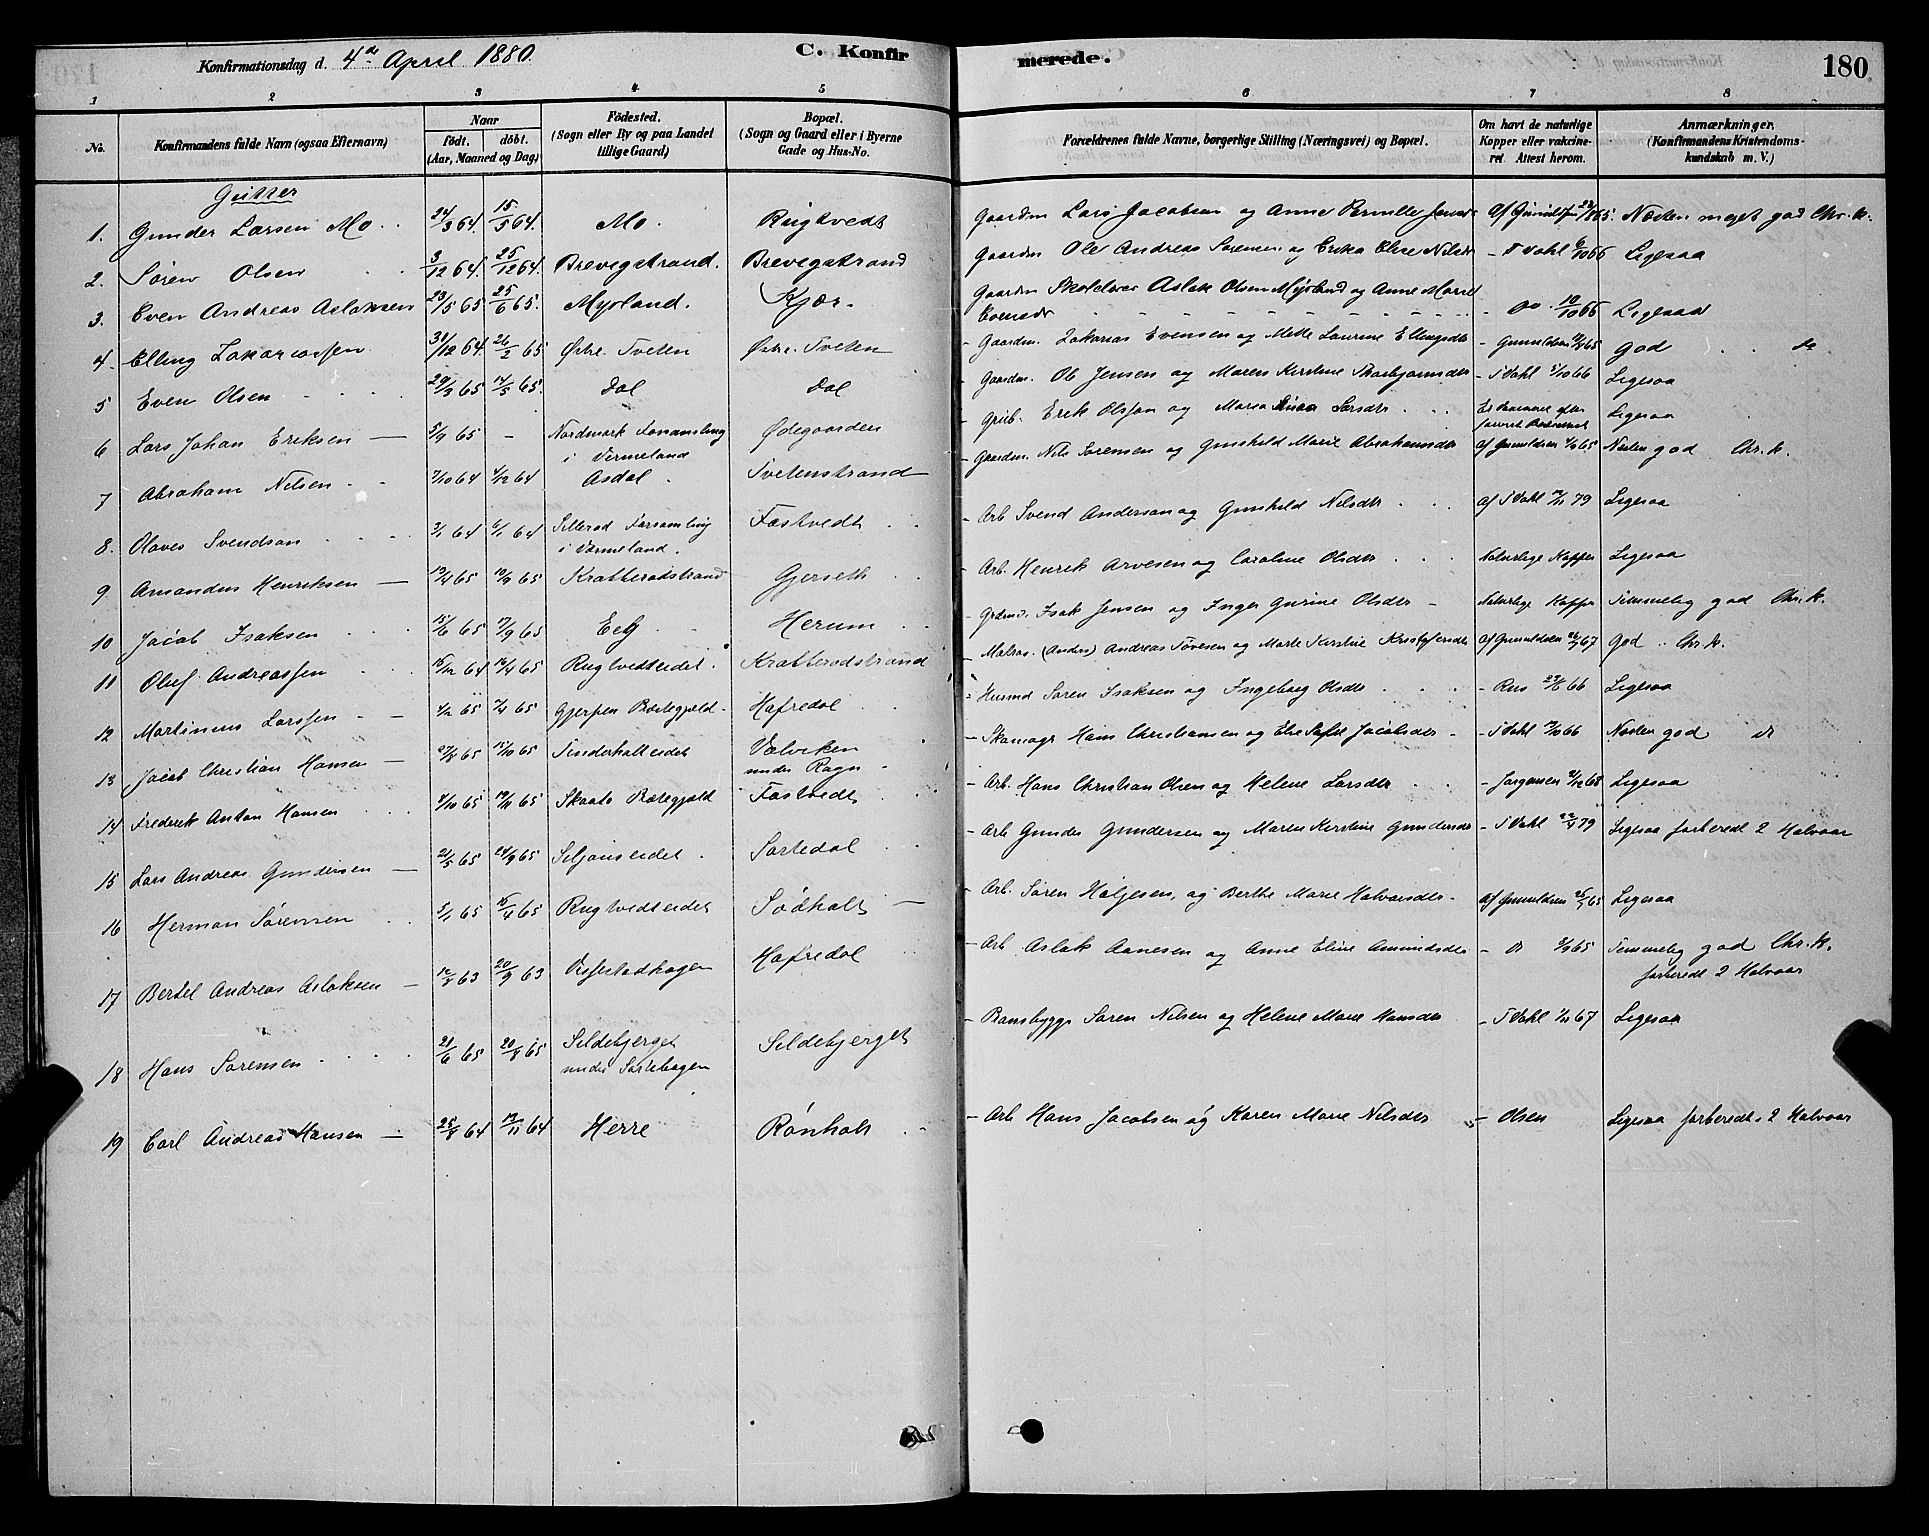 Konfirmationsdag d. 4de April 1880.
C. Konfir merede.
180
1 2 3 4 5 6 7 8
No. Konfirmandens fulde Navn (ogsaa Efternavn) Naar födt. döbt. (Aar, Maaned og Dag) Födested. (Sogn eller By og paa Landet tillige Gaard) Bopæl. (Sogn og Gaard eller i Byerne Gade og Hus-No. Forældrenes fulde Navne, borgerlige Stilling (Næringsvei) og Bopæl. Om havt de naturlige Kopper eller vakcineret. Attest herom. Anmærkninger. (Konfirmandens Kristendomskundskab m. V.)
Gutter
1. Gunder Larsen Mo 24/3 64. 15/5 64. Mo. Rugtvedt Gaardm Lars Jacobsen og Anne Pernille Af Gunildsen 65. Næsten meget god Chr.k.
2. Sören Olsen 3/12 64. 25/12 64. Brevigstrand. Brevigstrand Gaardm Ole Andreas Sörensen og Erika Elise Nilsdr - T Dahl 6/10 66 Ligesaa
3. Even Andreas Aslaksen 23/5 65. 25/6 65. Myrland. Kjær. Gaardm Skolelærer Aslak Olsen Myrland og Anne Marie
Evensdr - do 10/10 66 Ligesaa
4. Elling Zakariassen 31/12 64. 26/2 65. Østre. Tveten Østre. Tveten - Gaardm. Zakarias Evensen og Mette Laurine Ellingsdr - Gunuldsen 65 god do
5 Even Olsen 29/3 65 14/5 65. Dal Dal - Gaardm. Ole Jensen og Maren Kirstine Torbjørnsdr - T Dahl 5/10 66 Ligesaa
6 Lars Johan Eriksen 5/9 65 - Nordmark Forsamling
i Vermeland Ødegaarden - Grub. Erik Olsson og Maria Larsdr Er vaccineret efter
Ligesaa
7 Abraham Nilsen 7/10 64 4/12 64 Asdal. Tvetenstrand - Gaardm. Nils Sörensen og Gunhild Marie Abrahamsdr Af Gunuldsen 65 Næsten god Chr.k.
8. Olaves Svendsen 3/1 64 6/1 64 Sillerud Forsamling
i Værmeland. Fostvedt - Arb Svend Andersen og Gunhild Nilsdr Af T Dahl 79 Ligesaa
9 Amandus Henriksen 19/4 65 10/9 65 Kratterødstrand Gjerseth - Arb. Henrik Arvesen og Caroline Olsdr Naturlige Kopper Ligesaa
10 Jacob Isaksen 15/6 65 17/9 65 Eeg Herum - Isak Jensen og Inger Gurine Olsdr - Naturlige Kopper Temmelig god Chr.k.
11 Oluf Andreassen 15/12 64 16/4 65 Rugtvedteidet. Kratterødstrand - Matros. (Anders) Andreas Tovesen og Marte Kirstine Kristofersdr Af Gunuldsen 67 God Chr.k.
12 Martinius Larssen 4/2 65 7/4 65 Gjerpen Præstegjæld. Hafredal - Husmd Sören Isaksen og Ingeborg Olsdr - Rus 66 Ligesaa
13 Jacob Christian Hansen 27/8 65 15/10 65 Tinderholteidet Valviken
under Ragn - Hans Christiansen og Else Sofie Jacobsdr - T Dahl 66 Næsten god do
14 Frederik Anton Hansen 4/10 65 19/11 65 Skaato Præstegjæld Fostvedt - Arb. Hans Christian Olsen og Helene Larsdr - Jørgensen 68 Ligesaa
15 Lars Andreas Gundersen 21/5 65 24/9 65 Siljanseidet Sortedal - Arb Gunder Gundersen og Maren Kirstine Gundersdr - T Dahl 79 Ligesaa forberedt 2 Halvaar
16 Herman Sörensen 5/1 65 15/4 65 Rugtvedteidet Södholt - Arb. Sören Holjesen, og Berthe Marie Halvorsdr. Af Gunuldsen 65 Ligesaa
17 Bertel Andreas Aslaksen 63 20/9 63 Vissestadhagen Hafredal - Arb Aslak Aanesen og Anne Eline Amundsdr - do 65 Temmelig god Chr.k.
forberedt 2 Halvaar
18 Hans Sörensen 21/6 65 20/8 65 Sildebjerget
under Sortehagen Sildebjerget - Sören Nilsen og Helene Marie Hansdr - T Dahl 67 Ligesaa
19 Carl Andreas Hansen 25/8 64 13/11 64 Herre Rönholt - Arb Hans Jacobsen og Karen Marie Nilsdr - Olsen Ligesaa forberedt 2 Halvaar